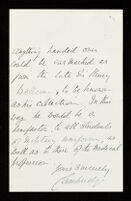 anything handed over
could be earmarked as
from the late Sir Henry
Wellcome, to be known
as his collection. In this
way he would be a
benefactor to all students
of Military, as
well as to those of the Medical
Profession.
Yours Sincerely
Cambridge